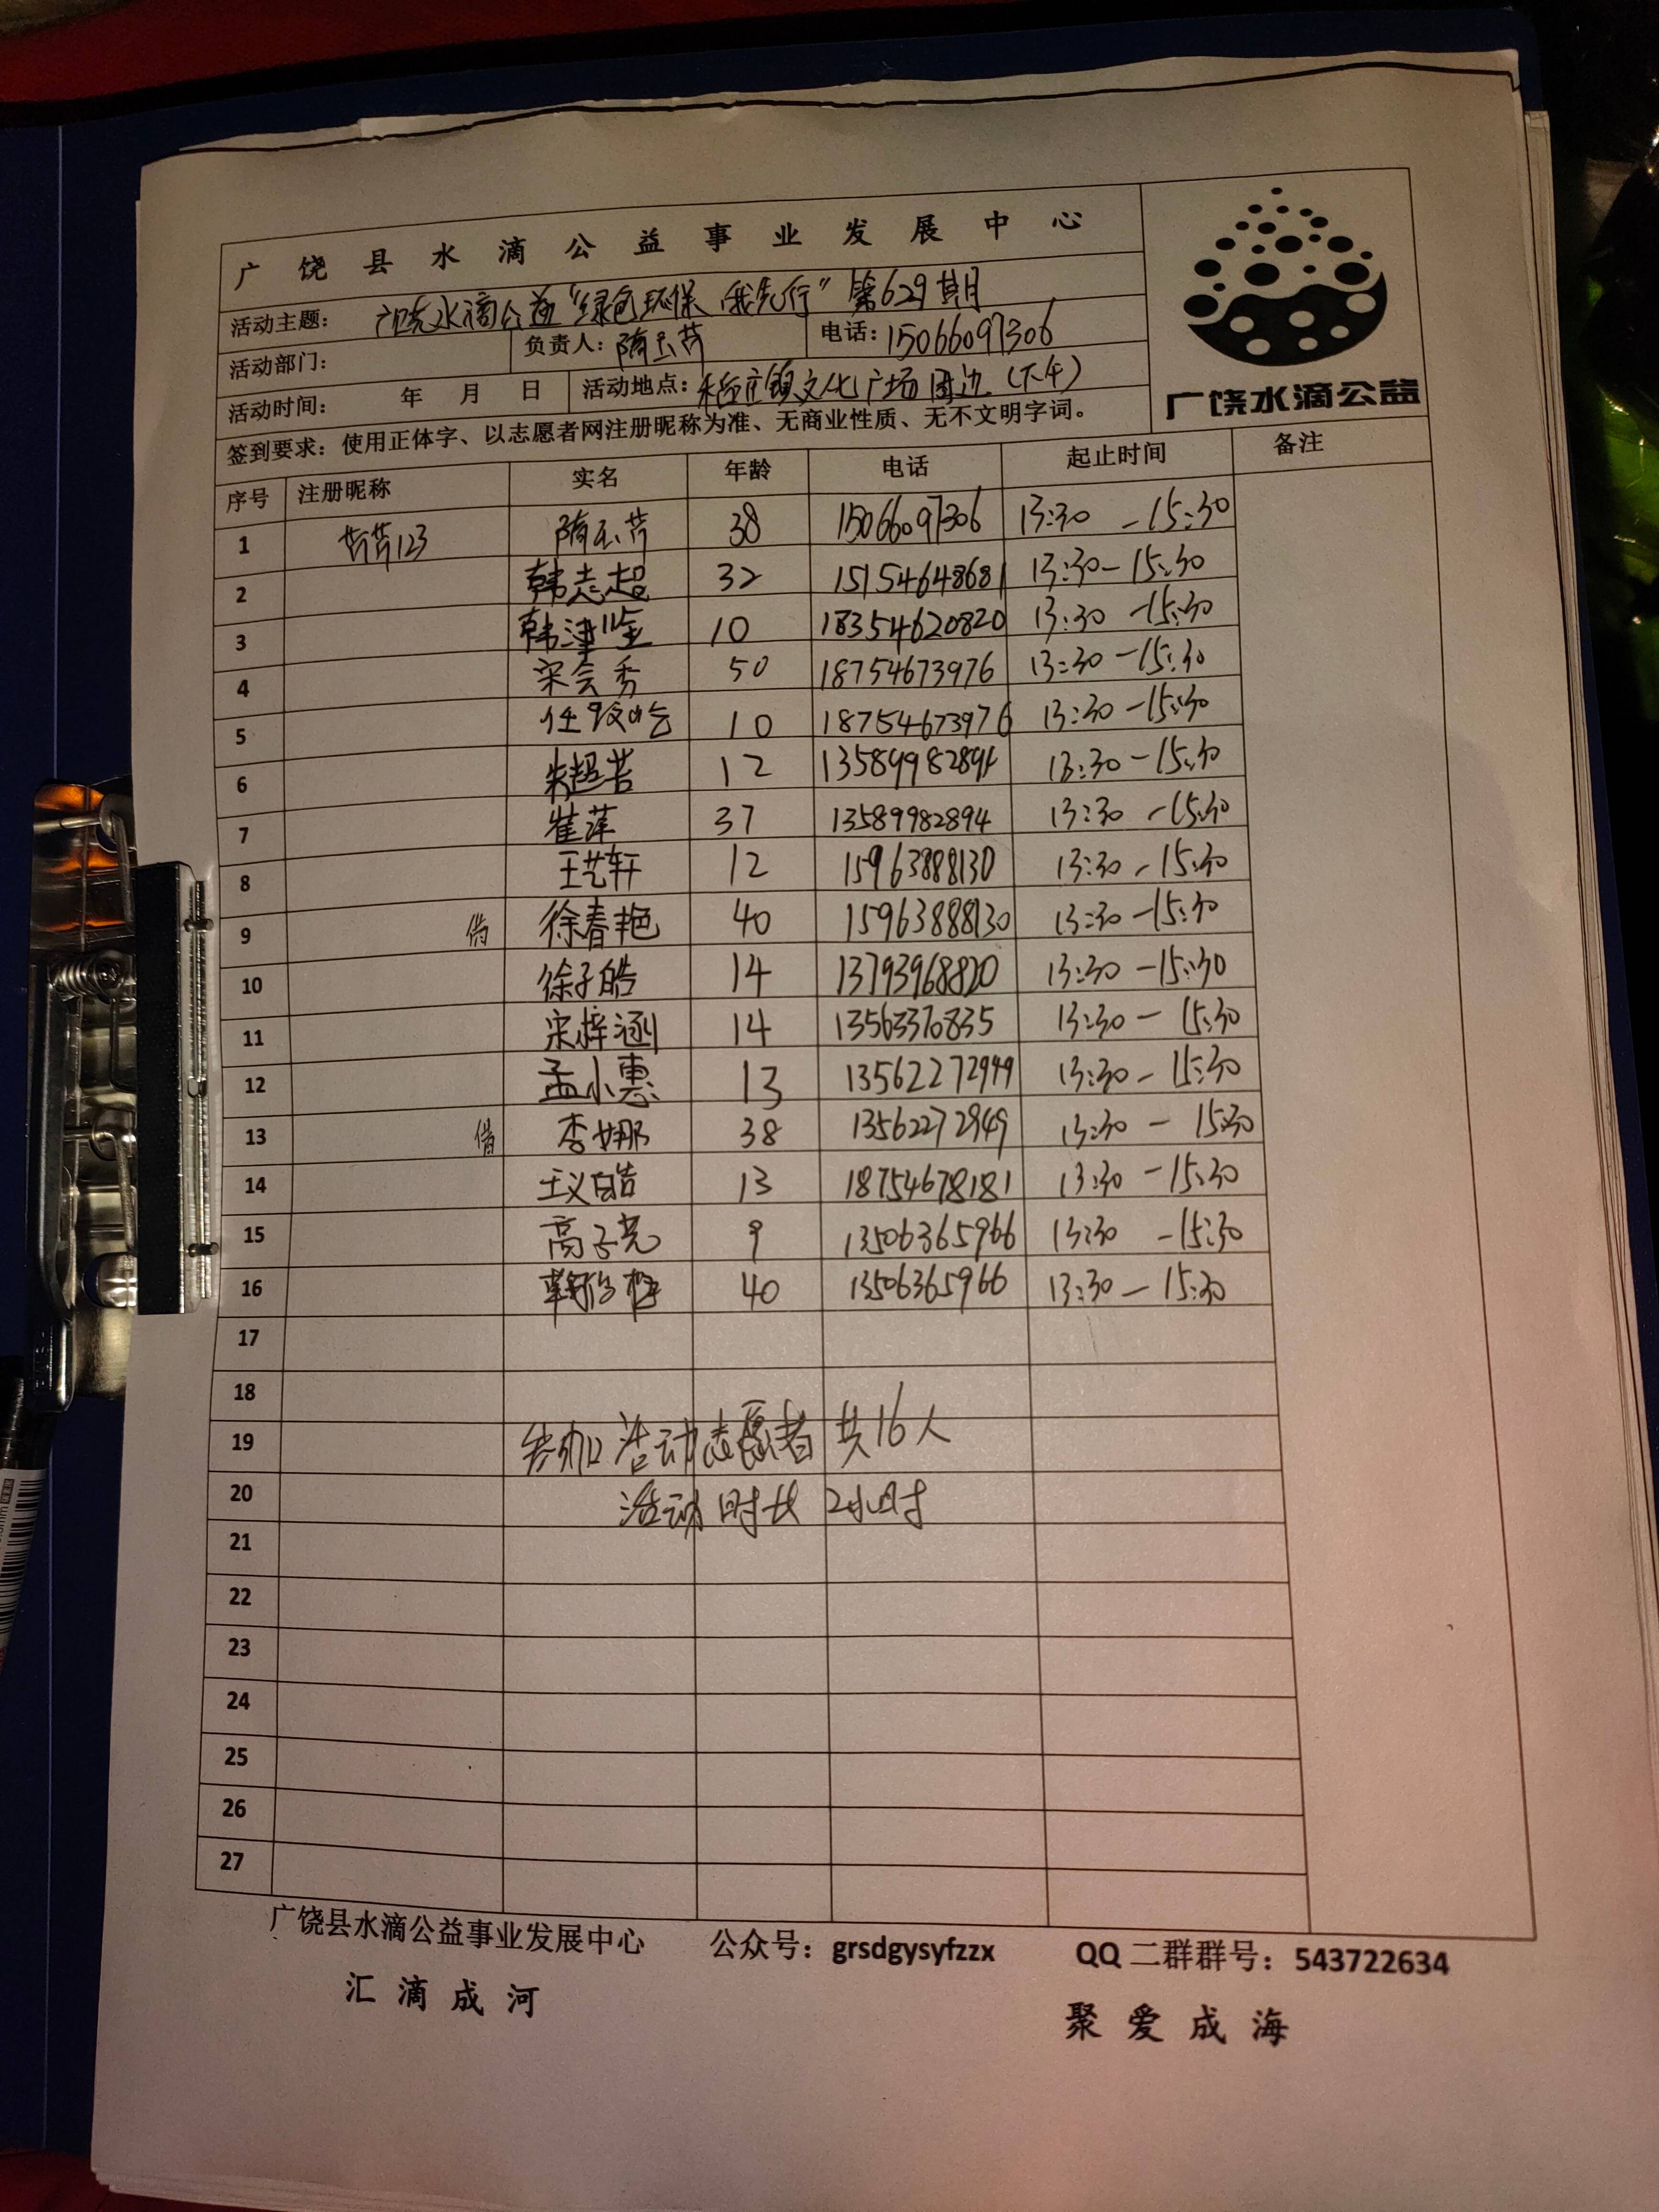 广饶县水滴公益事业发展中心
广饶水滴公益
活动主题：广饶水滴公益“绿色环保 我先行”第629期
活动部门： 负责人：隋玉芹 电话：15066097306
活动时间： 年 月 日 活动地点：稻庄镇文化广场周边（下午）
签到要求：使用正体字、以志愿者网注册昵称为准、无商业性质、无不文明字词。
序号 注册昵称 实名 年龄 电话 起止时间 备注
1 芹芹123 隋玉芹 38 15066097306 13:30 - 15:30
2 韩志超 32 15154648681 13:30 - 15:30
3 韩津 10 18354620820 13:30 - 15:30
4 宋会秀 50 18754673976 13:30 - 15:30
5 任 10 18754673976 13:30 - 15:30
6 朱超 12 13:30 - 15:30
7 崔萍 37 13589982894 13:30 - 15:30
8 王艺轩 12 15963888130 13:30 - 15:30
9 徐春艳 40 15963888130 13:30 - 15:30
10 徐子皓 14 13793968820 13:30 - 15:30
11 宋梓涵 14 13563370835 13:30 - 15:30
12 孟小惠 13 13562272949 13:30 - 15:30
13 李娜 38 13562272949 13:30 - 15:30
14 王义皓 13 18754678181 13:30 - 15:30
15 高子尧 9 13506365966 13:30 - 15:30
16 40 13506365966 13:30 - 15:30
17
18
19 参加活动志愿者共16人
20 活动时长 2小时
21
22
23
24
25
26
27
广饶县水滴公益事业发展中心 公众号：grsdgysyfzzx QQ 二群群号：543722634
汇滴成河 聚爱成海